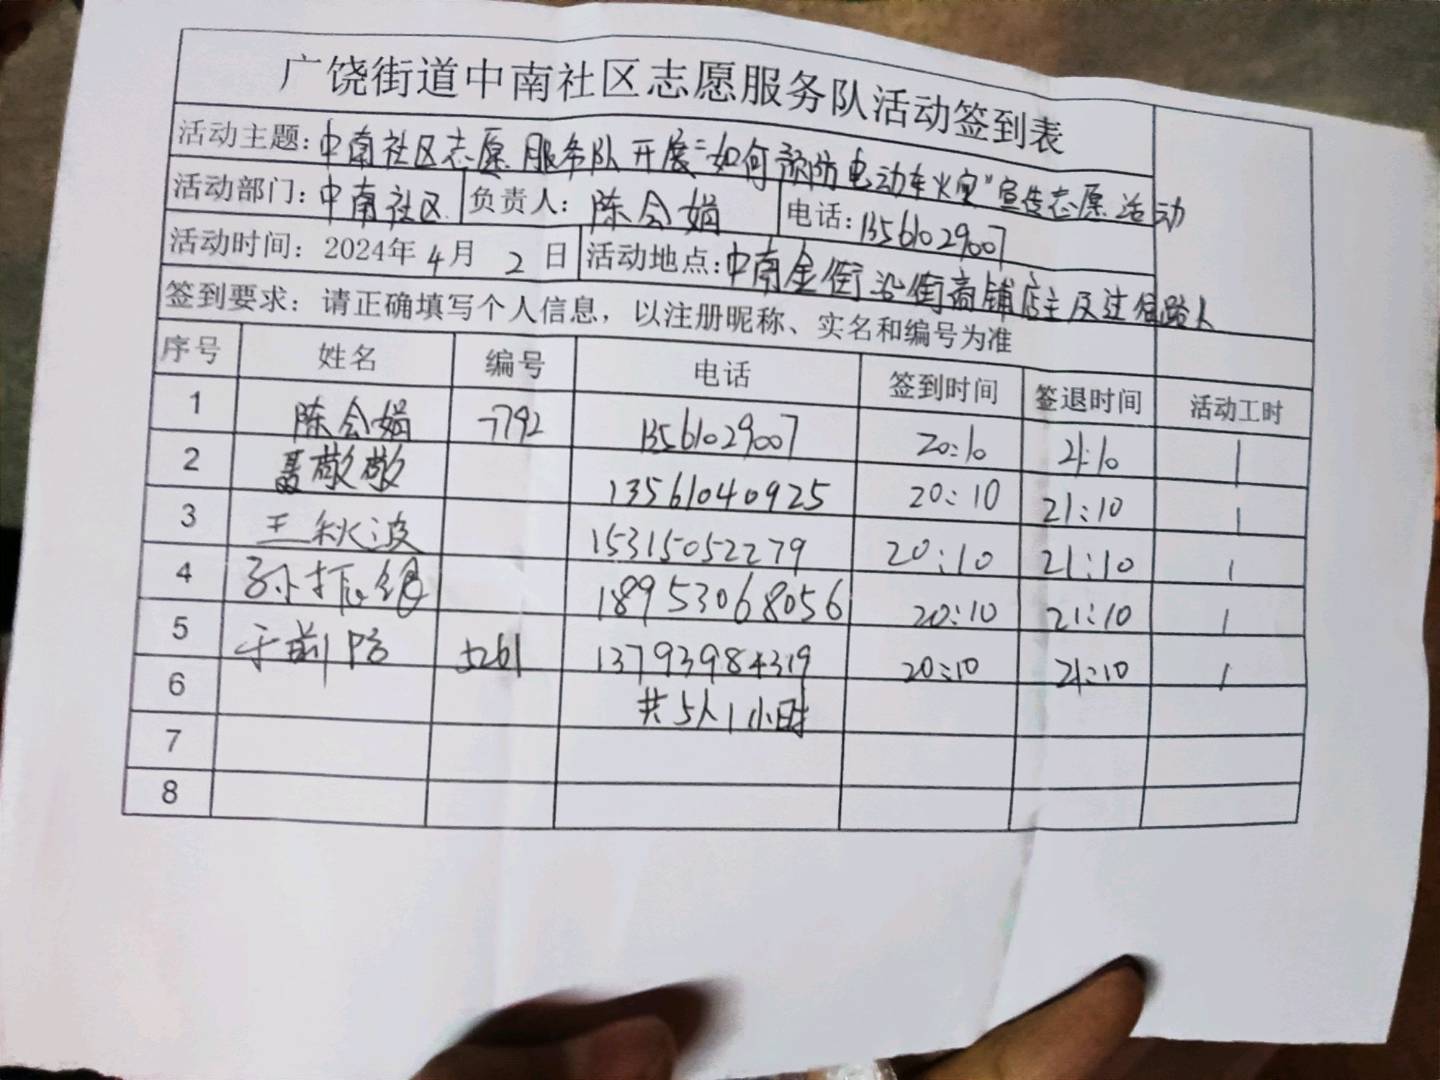 广饶街道中南社区志愿服务队活动签到表
活动主题：中南社区志愿服务队开展"如何预防电动车火灾"宣传志愿活动
活动部门：中南社区 负责人：陈会娟 电话：13561029007
活动时间：2024年4月2日 活动地点：中南金街沿街商铺店主及过往路人
签到要求：请正确填写个人信息，以注册昵称、实名和编号为准
序号 姓名 编号 电话 签到时间 签退时间 活动工时
1 陈会娟 7792 13561029007 20:10 21:10 1
2 聂敬敬 13561040925 20:10 21:10 1
3 王秋波 15315052279 20:10 21:10 1
4 孙 18953068056 20:10 21:10 1
5 于前防 5261 13793984319 20:10 21:10 1
6 共5人1小时
7
8